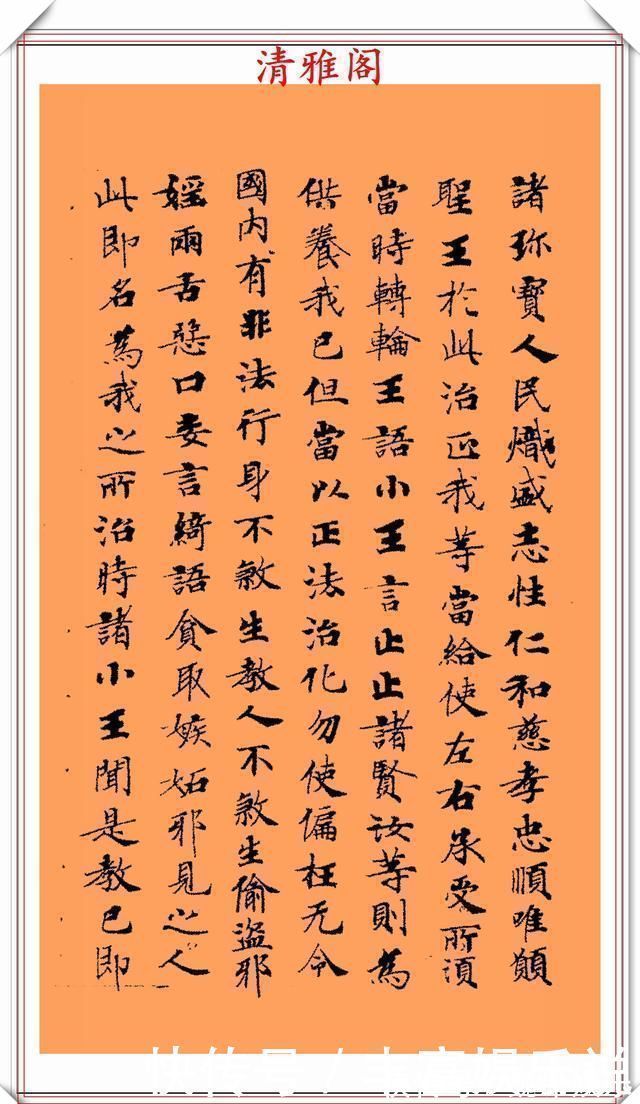 清雅阁
諸珎寳人民熾盛志性仁和慈孝忠順唯願
聖王於此治正我等當給使左右承受所須
當時轉輪王語小王言止止諸賢汝等則為
供養我已但當以正法治化勿使偏枉无令
國内有非法行身不煞生教人不煞生偷盗邪
婬兩舌惡口妄言綺語貪取嫉妬邪見之人
此即名為我之所治時諸小王聞是教已即
快传号